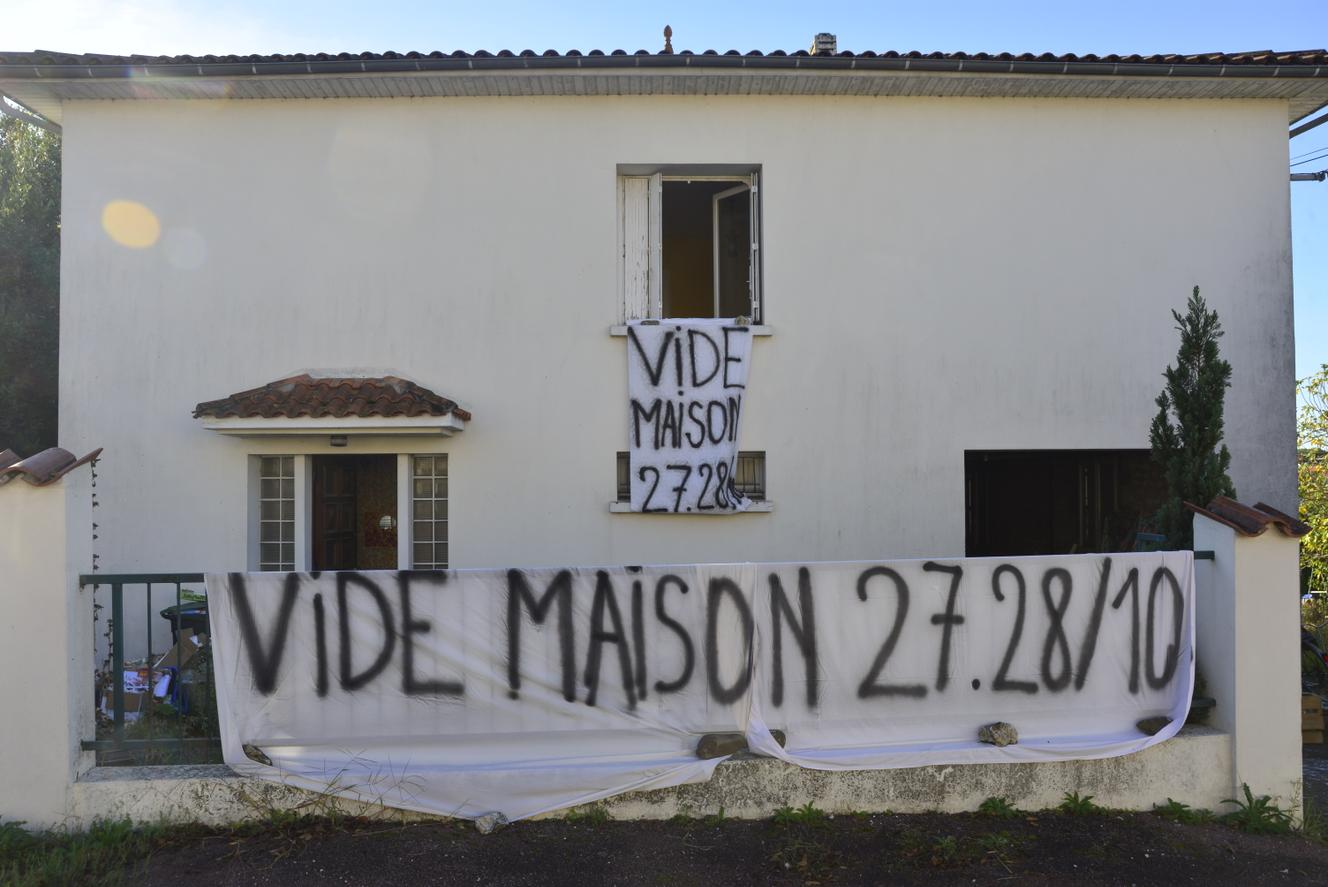 ViDE
MAiSON
27.28/
ViDE MAiSON 27.28/10